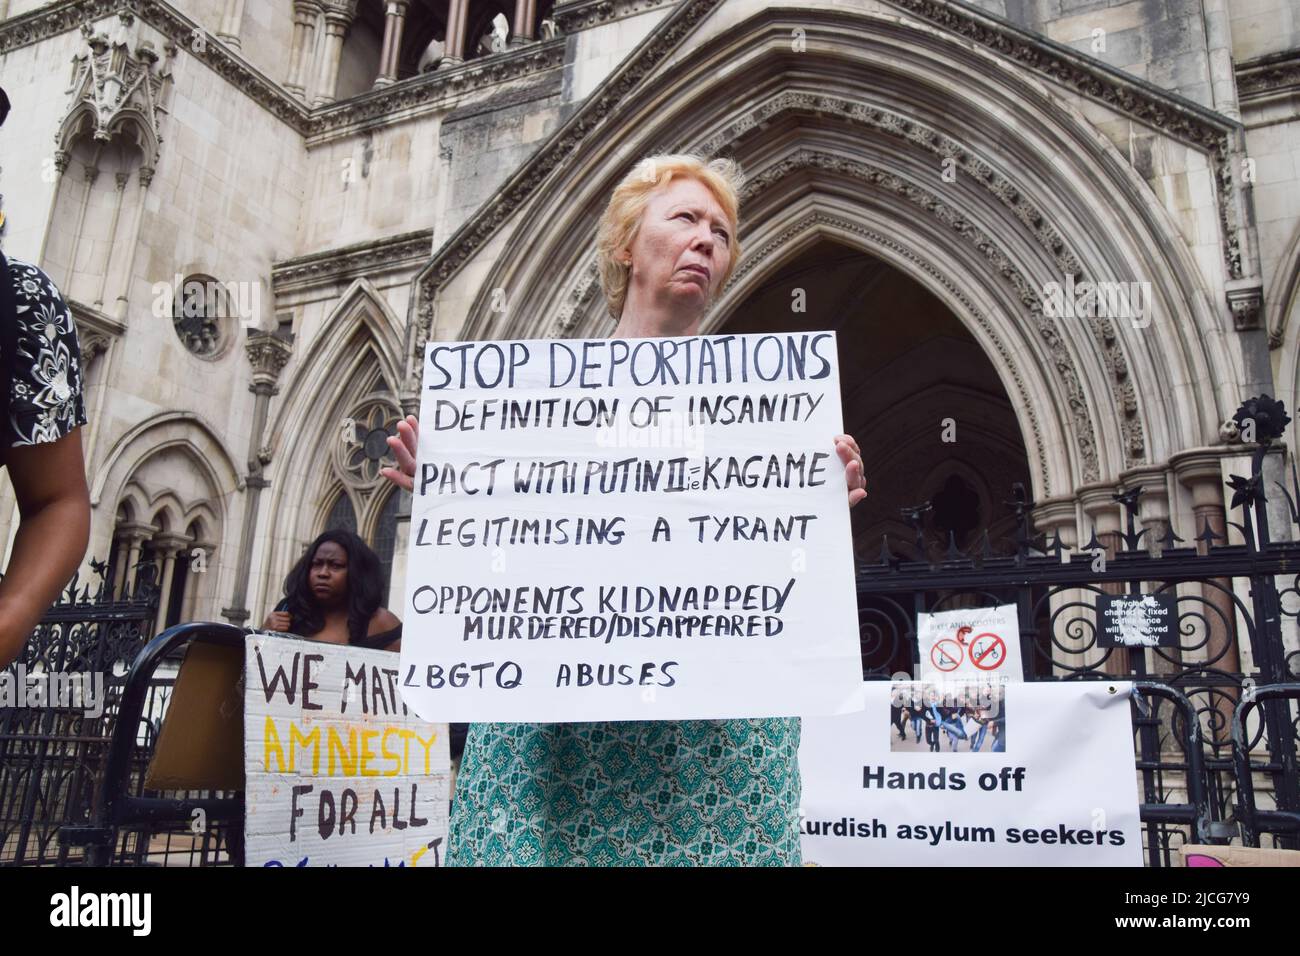 STOP DEPORTATIONS
DEFINITION OF INSANITY
PACT WITH PUTIN II = ie KAGAME
LEGITIMISING A TYRANT
OPPONENTS KIDNAPPED/
MURDERED/DISAPPEARED
LBGTQ ABUSES
WE MAT
AMNESTY
FOR ALL
BIKES AND SCOOTERS
Bicycles etc.
chained or fixed
to this fence
will be removed
by
Hands off
Kurdish asylum seekers
a
alamy
alamy
Image ID: 2JCG7Y9
www.alamy.com